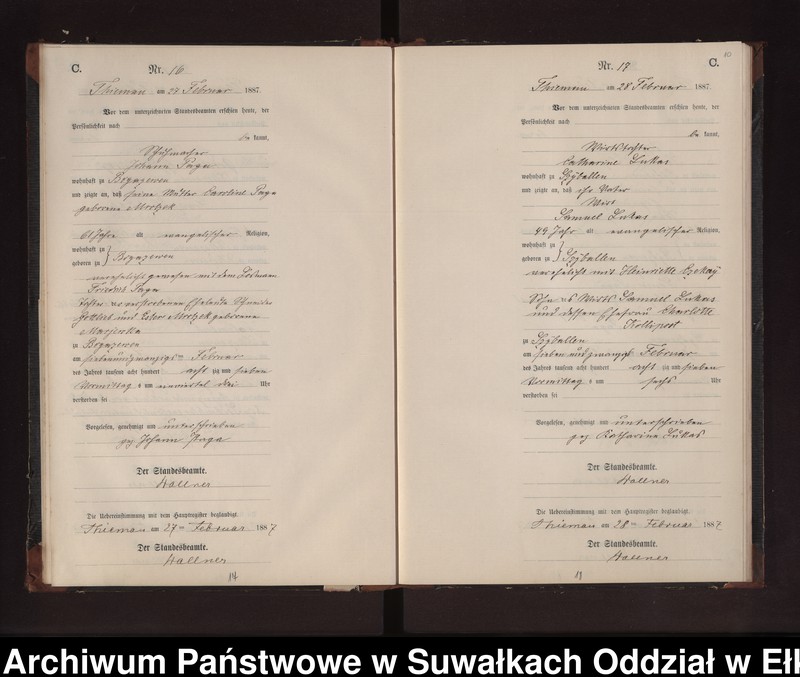 C. Nr. 16
Thieman am 27 Februar 1887.
Vor dem unterzeichneten Standesbeamten erschien heute, der
Persönlichkeit nach
be kannt,
Schuhmacher
Johann
wohnhaft zu Bogazewen
und zeigte an, daß seine Mutter Caroline
geborene Mrotzek
61 Jahre alt evangelischer Religion,
wohnhaft zu
geboren zu Bogazewen
verehelicht gewesen mit dem Losmann
Friedrich
Tochter der verstorbenen Eheleute
Gottlieb und Ester Mrotzek geborene
zu Bogazewen
am siebenundzwanzigsten Februar
des Jahres tausend acht hundert acht zig und sieben
Vormittags um dreiviertel drei Uhr
verstorben sei
Vorgelesen, genehmigt und unterschrieben
gez. Johann
Der Standesbeamte.
Hallner
Die Uebereinstimmung mit dem Hauptregister beglaubigt.
Thieman am 27ten Februar 1887
Der Standesbeamte.
Hallner
14
10
Nr. 17 C.
Thieman am 28 Februar 1887.
Vor dem unterzeichneten Standesbeamten erschien heute, der
Persönlichkeit nach
be kannt,
Wirthstochter
Catharine Lukas
wohnhaft zu Szyballen
und zeigte an, daß ihr Vater
Wirth
Samuel Lukas
49 Jahr alt evangelischer Religion,
wohnhaft zu
geboren zu Szyballen
verehelicht mit Heinriette
Sohn des Wirths Samuel Lukas
und dessen Ehefrau Charlotte
zu Szyballen
am sieben und zwanzigsten Februar
des Jahres tausend acht hundert acht zig und sieben
Vormittags um sechs Uhr
verstorben sei
Vorgelesen, genehmigt und unterschrieben
gez. Katharina Lukas
Der Standesbeamte.
Hallner
Die Uebereinstimmung mit dem Hauptregister beglaubigt.
Thieman am 28ten Februar 1887
Der Standesbeamte.
Hallner
Archiwum Państwowe w Suwałkach Oddział w Ełk